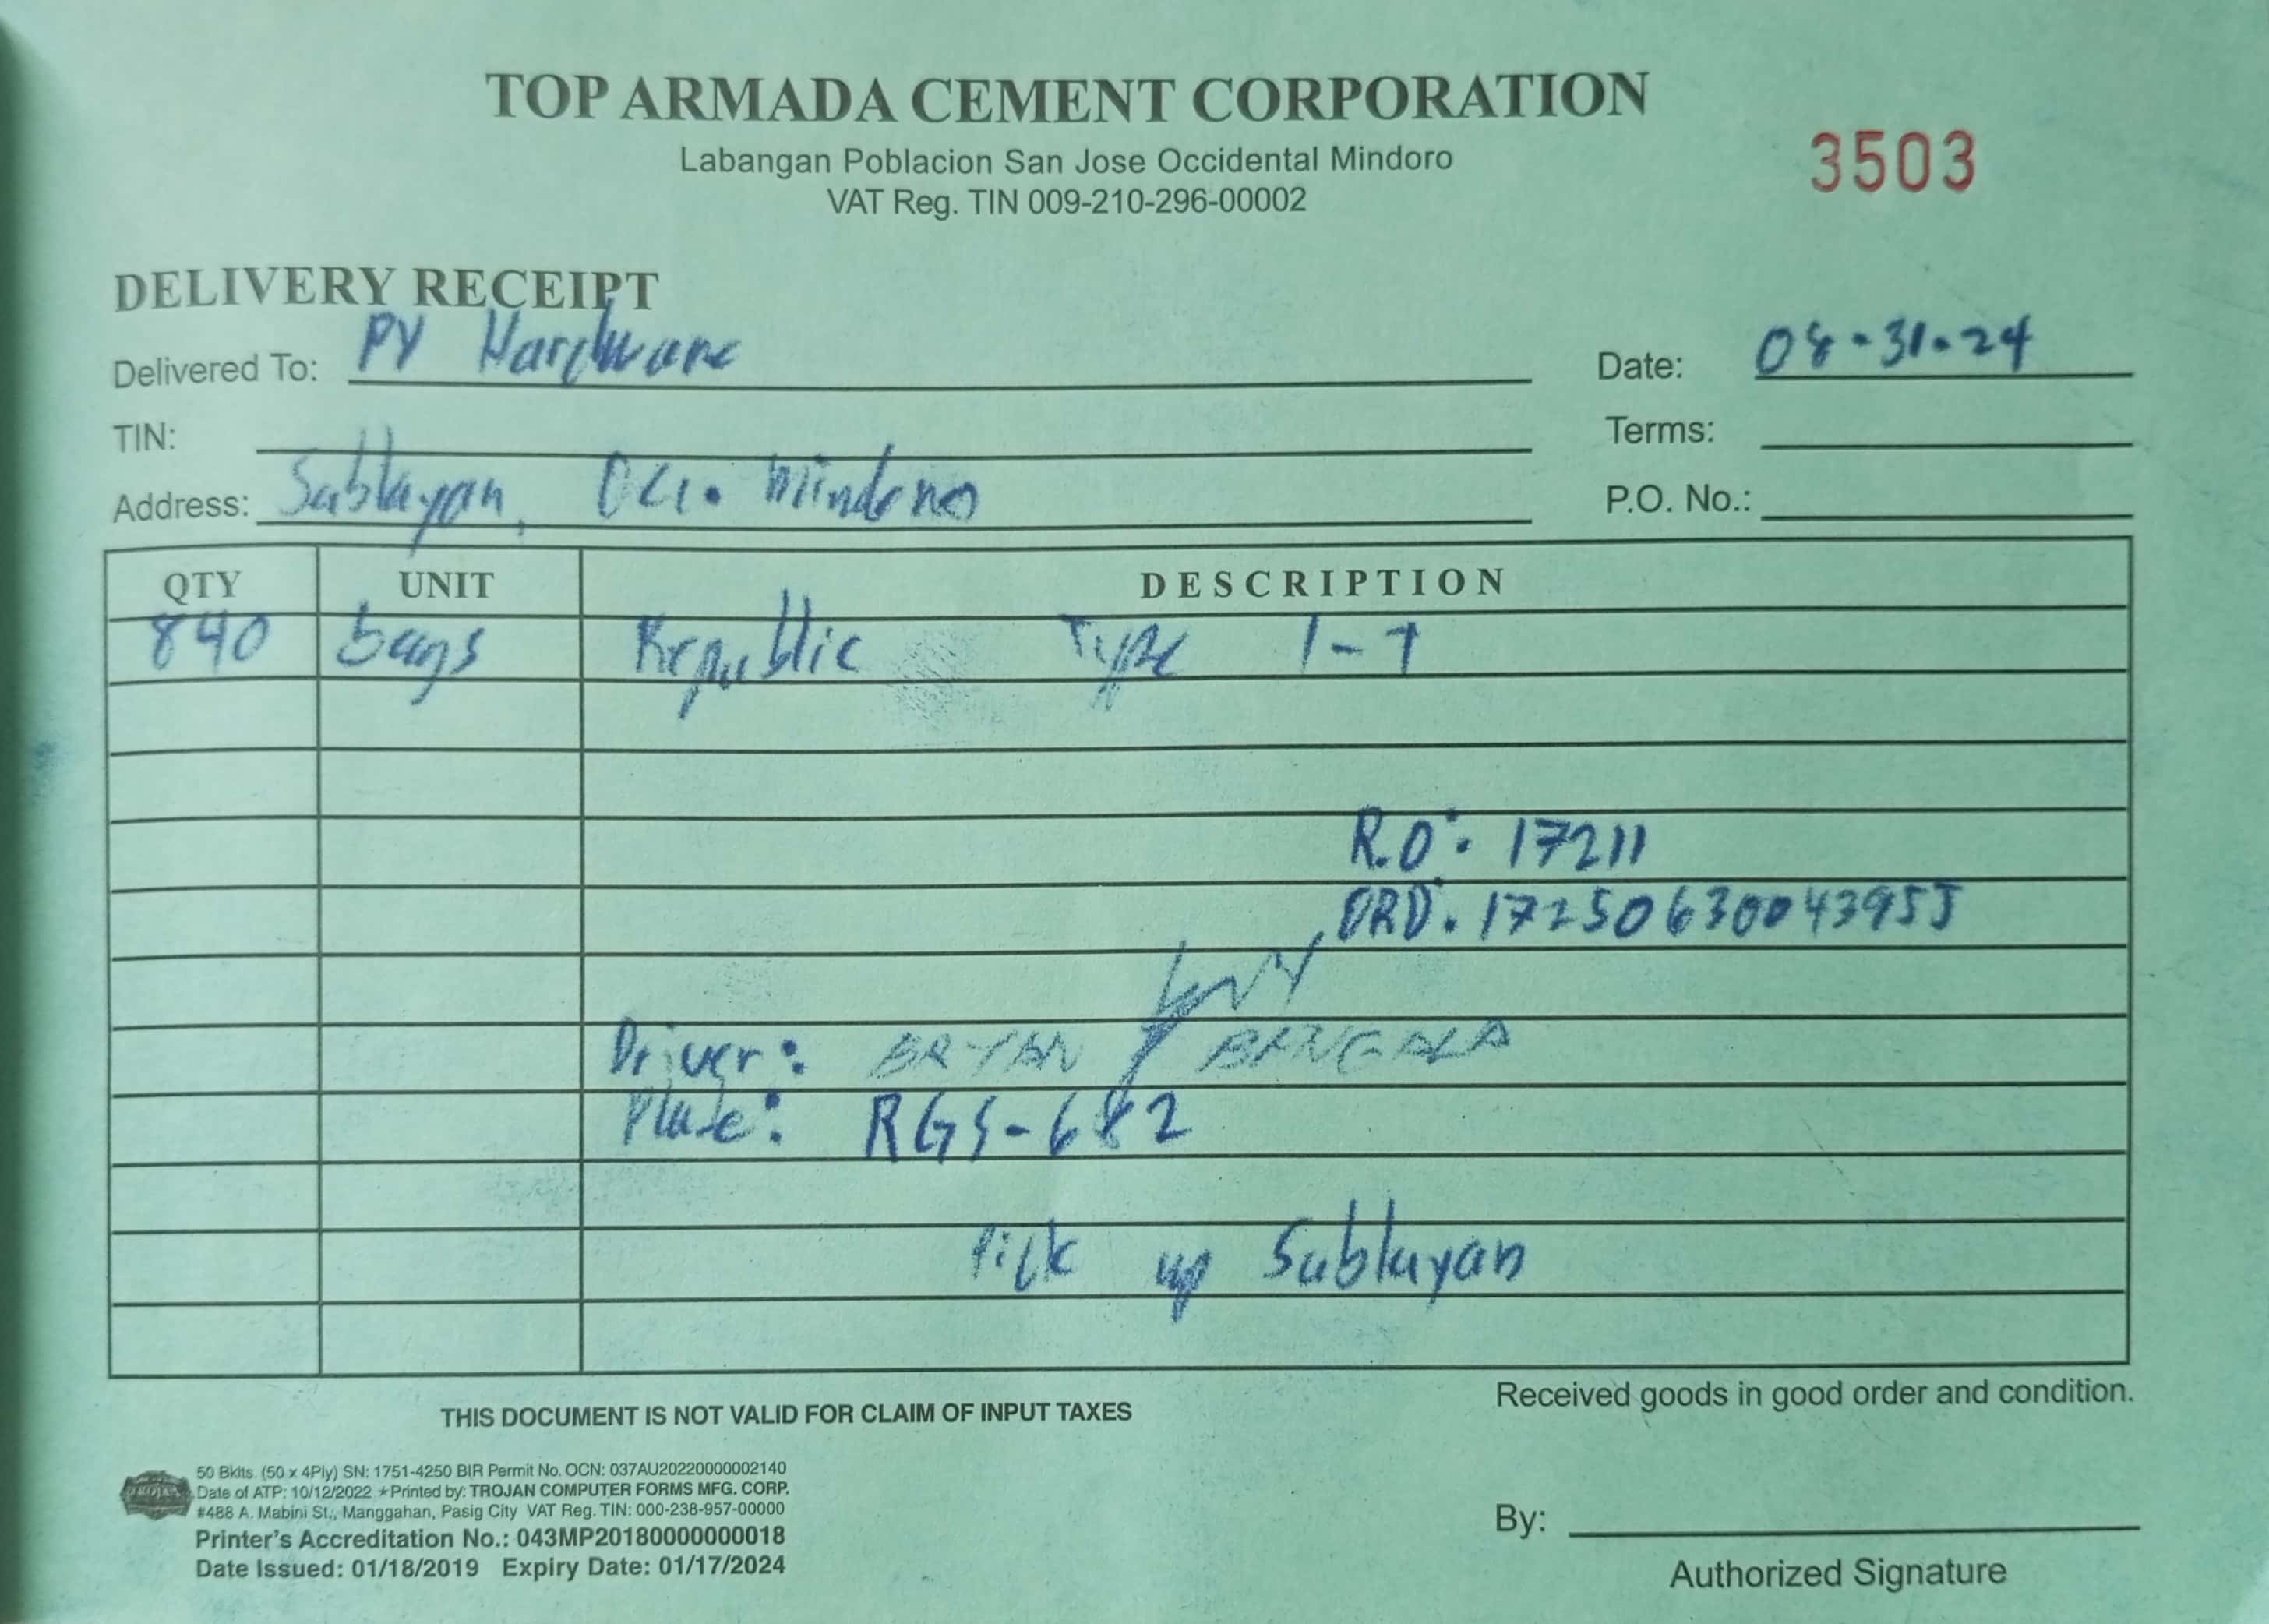 TOP ARMADA CEMENT CORPORATION
Labangan Poblacion San Jose Occidental Mindoro
VAT Reg. TIN 009-210-296-00002
3503
DELIVERY RECEIPT
Delivered To: PY Hardware
Date: 08-31-24
TIN:
Terms:
Address: Sablayan, Occ. Mindoro
P.O. No.:
QTY UNIT DESCRIPTION
840 bags Republic Type 1-T
R.O: 17211
ORD: 1725063004395J
Driver: BRYAN BANGALA
Plate: RGS-682
Pick up Sablayan
THIS DOCUMENT IS NOT VALID FOR CLAIM OF INPUT TAXES
Received goods in good order and condition.
50 Bklts. (50 x 4Ply) SN: 1751-4250 BIR Permit No. OCN: 037AU20220000002140
Date of ATP: 10/12/2022 ★Printed by: TROJAN COMPUTER FORMS MFG. CORP.
#488 A. Mabini St., Manggahan, Pasig City VAT Reg. TIN: 000-238-957-00000
Printer's Accreditation No.: 043MP20180000000018
Date Issued: 01/18/2019 Expiry Date: 01/17/2024
By:
Authorized Signature